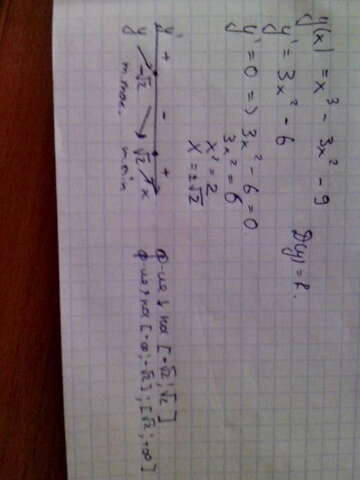 y(x) = x³ - 3x² - 9
D(y) = R.
y' = 3x² - 6
y' = 0 => 3x² - 6 = 0
3x² = 6
x² = 2
x = ±√2
y' + - +
y -√2 √2 x
m max. m min
ф-ция ↓ на [-√2; √2]
ф-ция ↑ на [-∞; -√2]; [√2; +∞]